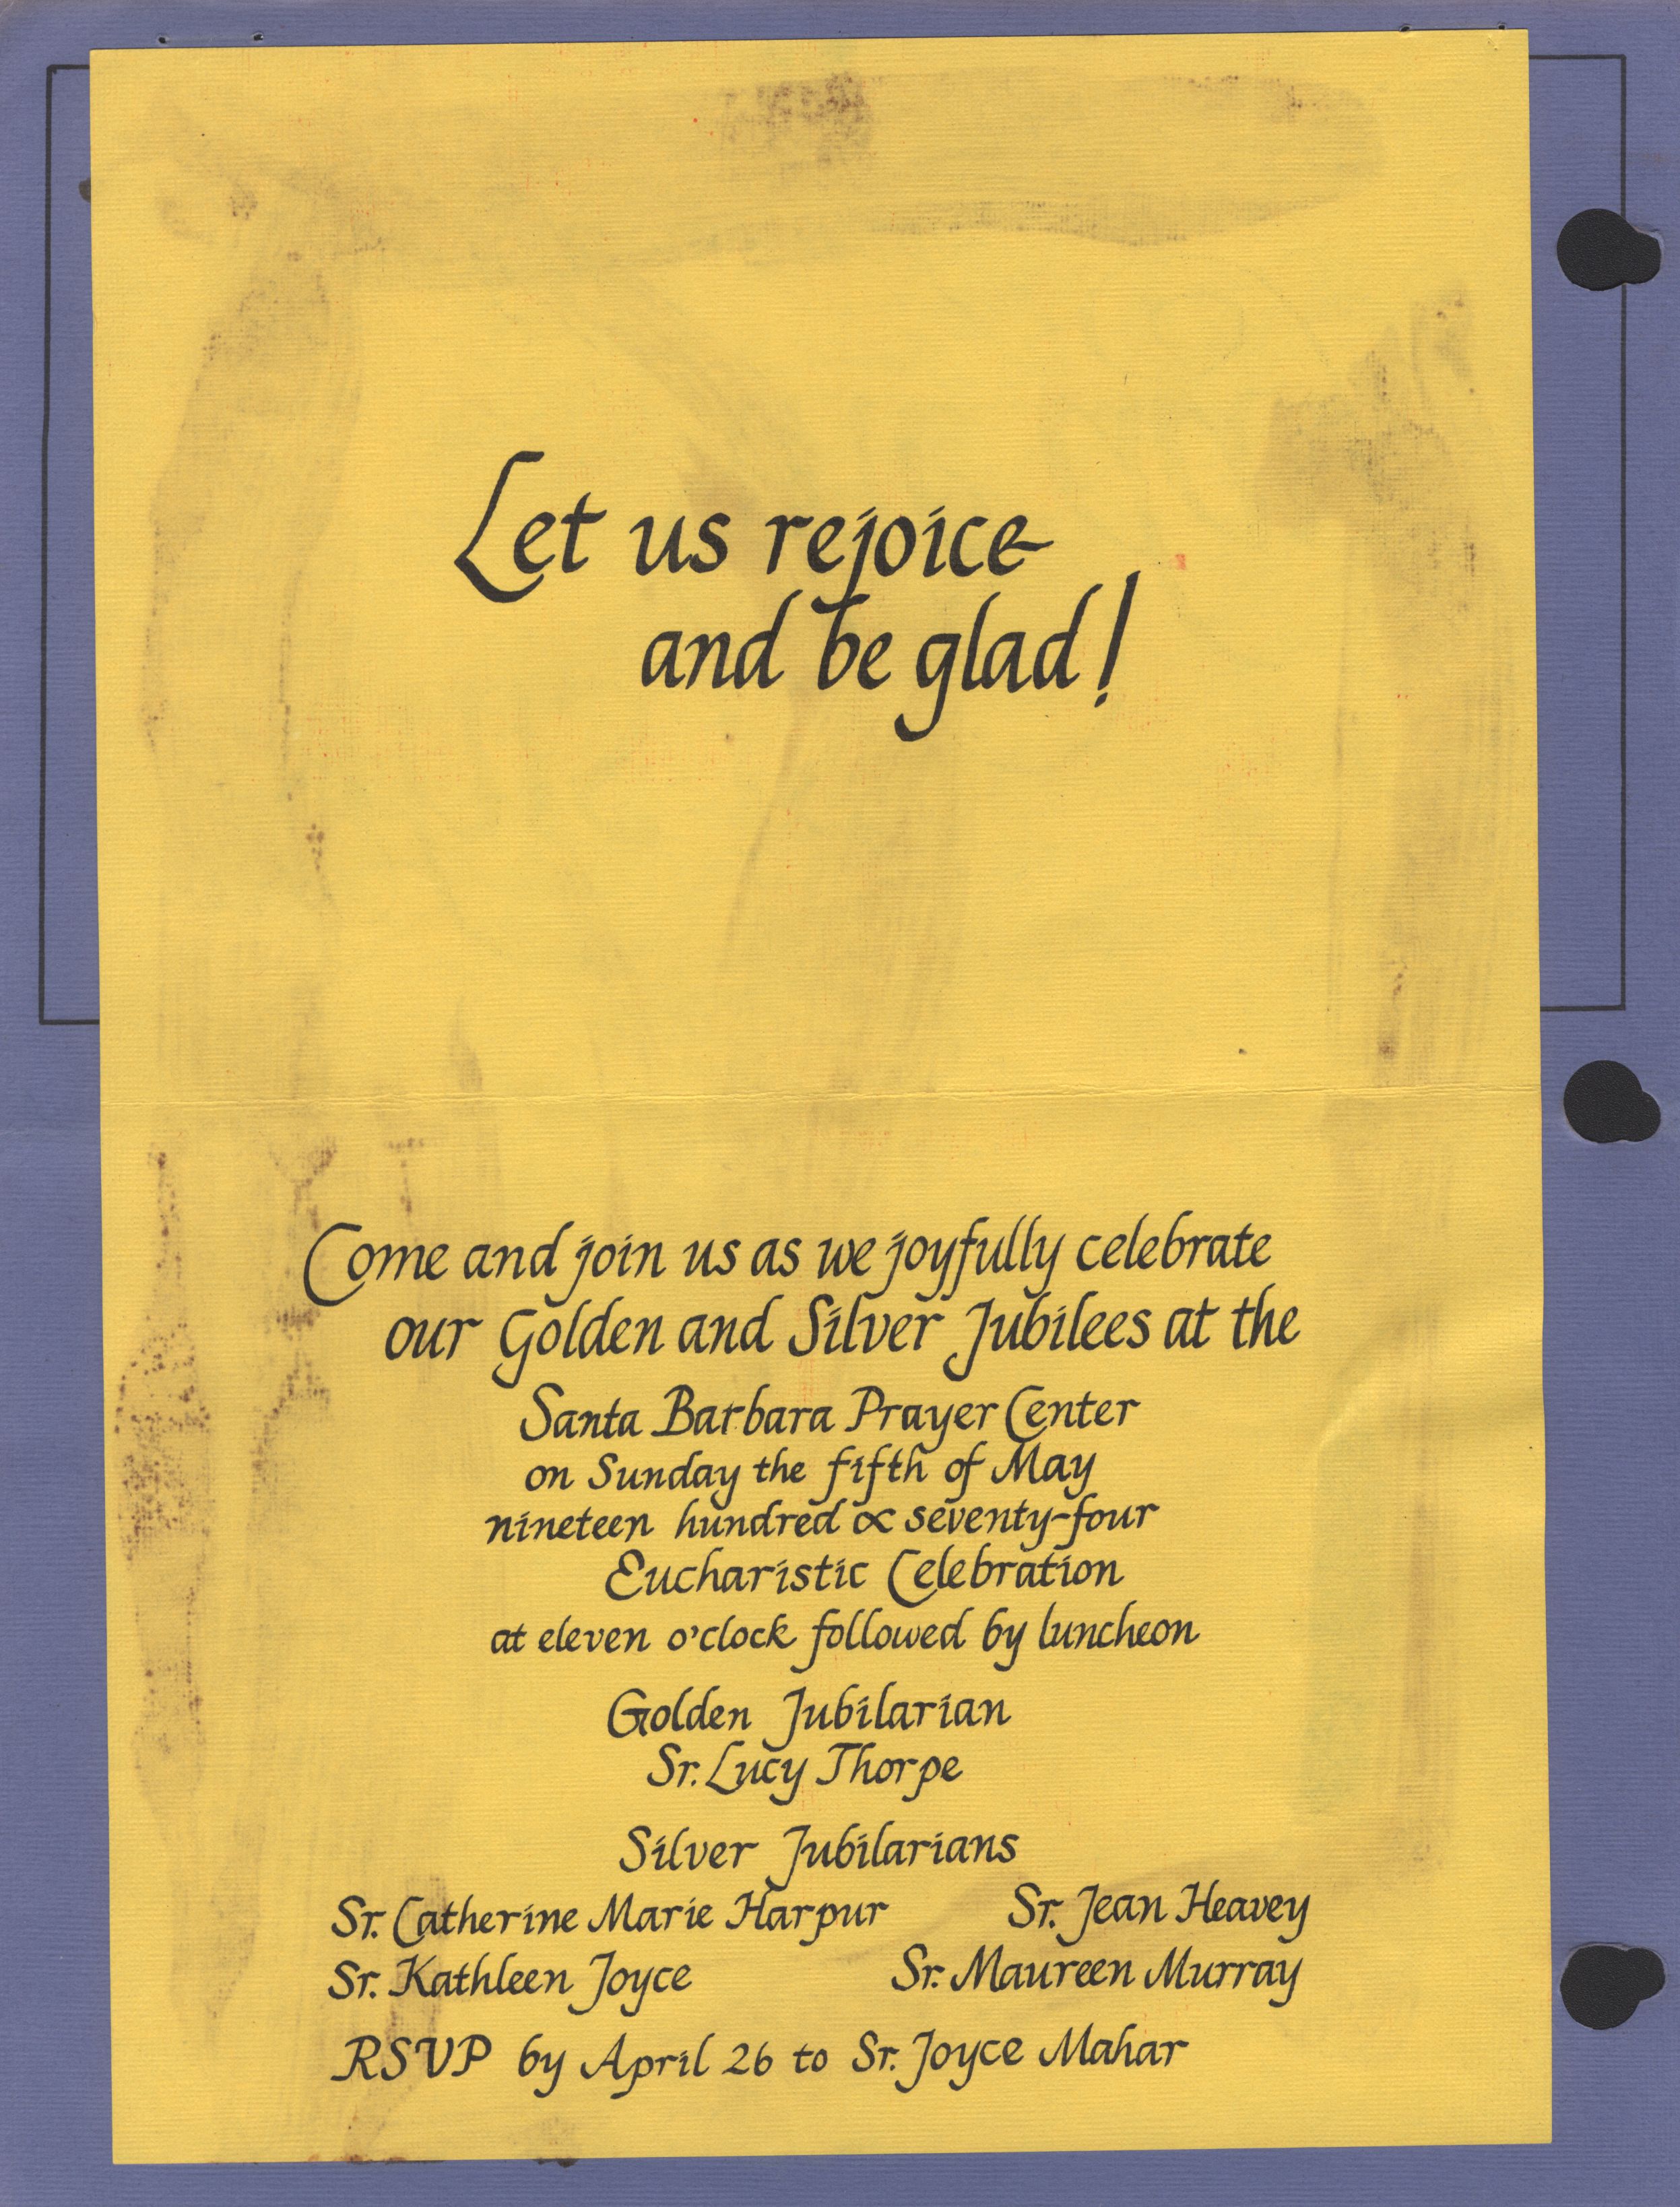 Let us rejoice
and be glad!
Come and join us as we joyfully celebrate
our Golden and Silver Jubilees at the
Santa Barbara Prayer Center
on Sunday the fifth of May
nineteen hundred & seventy-four
Eucharistic Celebration
at eleven o'clock followed by luncheon
Golden Jubilarian
Sr. Lucy Thorpe
Silver Jubilarians
Sr. Catherine Marie Harpur Sr. Jean Heavey
Sr. Kathleen Joyce Sr. Maureen Murray
RSVP by April 26 to Sr. Joyce Mahar